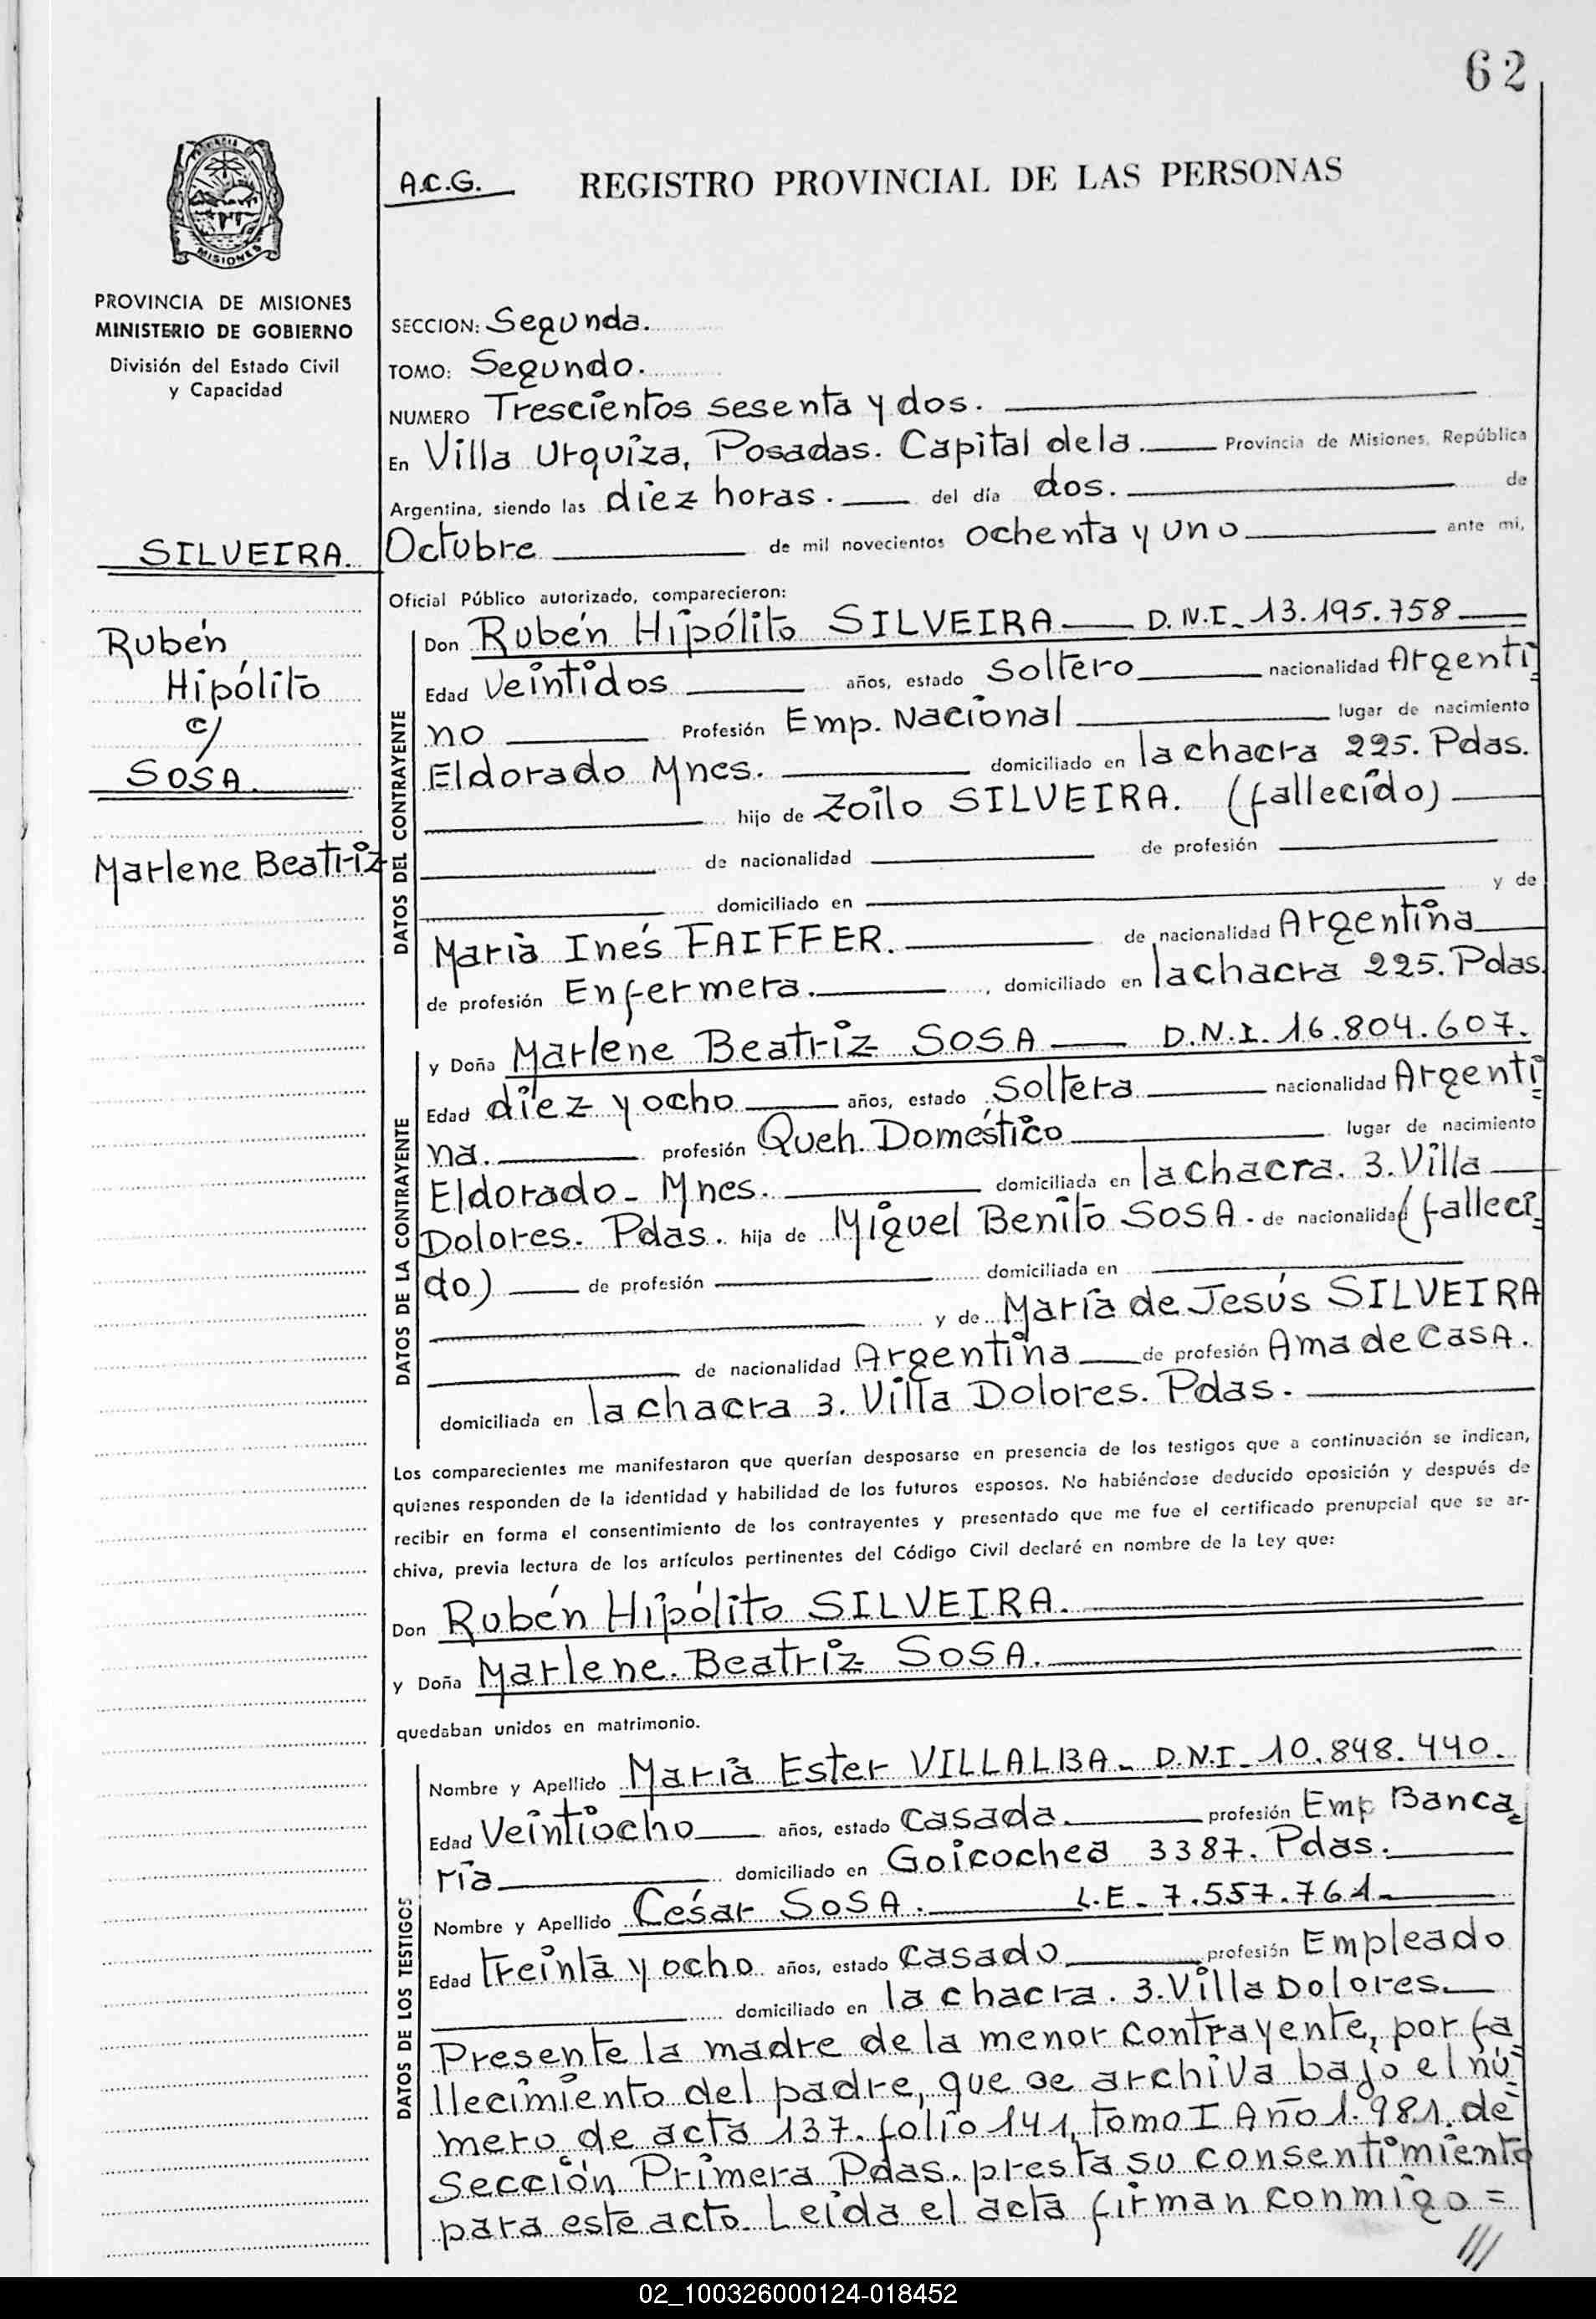 62
PROVINCIA DE
MISIONES
PROVINCIA DE MISIONES
MINISTERIO DE GOBIERNO
División del Estado Civil
y Capacidad
SILVEIRA.
Rubén
Hipólito
c/
SOSA.
Marlene Beatriz
A.C.G.
REGISTRO PROVINCIAL DE LAS PERSONAS
SECCION: Segunda.
TOMO: Segundo.
NUMERO Trescientos sesenta y dos.
En Villa Urquiza, Posadas. Capital de la. Provincia de Misiones, República
Argentina, siendo las diez horas. del día dos. de
Octubre de mil novecientos ochenta y uno ante mi,
Oficial Público autorizado, comparecieron:
DATOS DEL CONTRAYENTE
Don Rubén Hipólito SILVEIRA D.N.I. 13.195.758
Edad Veintidos años, estado Soltero nacionalidad Argenti
no Profesión Emp. Nacional lugar de nacimiento
Eldorado Mnes. domiciliado en la chacra 225. Pdas.
hijo de Zoilo SILVEIRA. (fallecido)
de nacionalidad de profesión
domiciliado en y de
Maria Inés FAIFFER. de nacionalidad Argentina
de profesión Enfermera. , domiciliado en la chacra 225. Pdas.
DATOS DE LA CONTRAYENTE
y Doña Marlene Beatriz SOSA D.N.I. 16.804.607.
Edad diez y ocho años, estado Soltera nacionalidad Argenti
na. profesión Queh. Doméstico lugar de nacimiento
Eldorado - Mnes. domiciliada en la chacra. 3. Villa
Dolores. Pdas. hija de Miguel Benito SOSA. de nacionalidad (falleci
do) de profesión domiciliada en
y de María de Jesús SILVEIRA
de nacionalidad Argentina de profesión Ama de Casa.
domiciliada en la chacra 3. Villa Dolores. Pdas.
Los comparecientes me manifestaron que querían desposarse en presencia de los testigos que a continuación se indican,
quienes responden de la identidad y habilidad de los futuros esposos. No habiéndose deducido oposición y después de
recibir en forma el consentimiento de los contrayentes y presentado que me fue el certificado prenupcial que se ar-
chiva, previa lectura de los artículos pertinentes del Código Civil declaré en nombre de la Ley que:
Don Rubén Hipólito SILVEIRA.
y Doña Marlene. Beatriz SOSA.
quedaban unidos en matrimonio.
DATOS DE LOS TESTIGOS
Nombre y Apellido Maria Ester VILLALBA - D.N.I - 10.848.440.
Edad Veintiocho años, estado Casada. profesión Emp Banca
ría domiciliado en Goicochea 3387. Pdas.
Nombre y Apellido César SOSA. L.E - 7.557.761-
Edad treinta y ocho años, estado Casado profesión Empleado
domiciliado en la chacra. 3. Villa Dolores.
Presente la madre de la menor contrayente, por fa
llecimiento del padre, que se archiva bajo el nú
mero de acta 137. folio 141, tomo I Año 1.981. de
Sección Primera Pdas. presta su consentimiento
para este acto. Leida el acta firman conmigo =
///
02_100326000124-018452